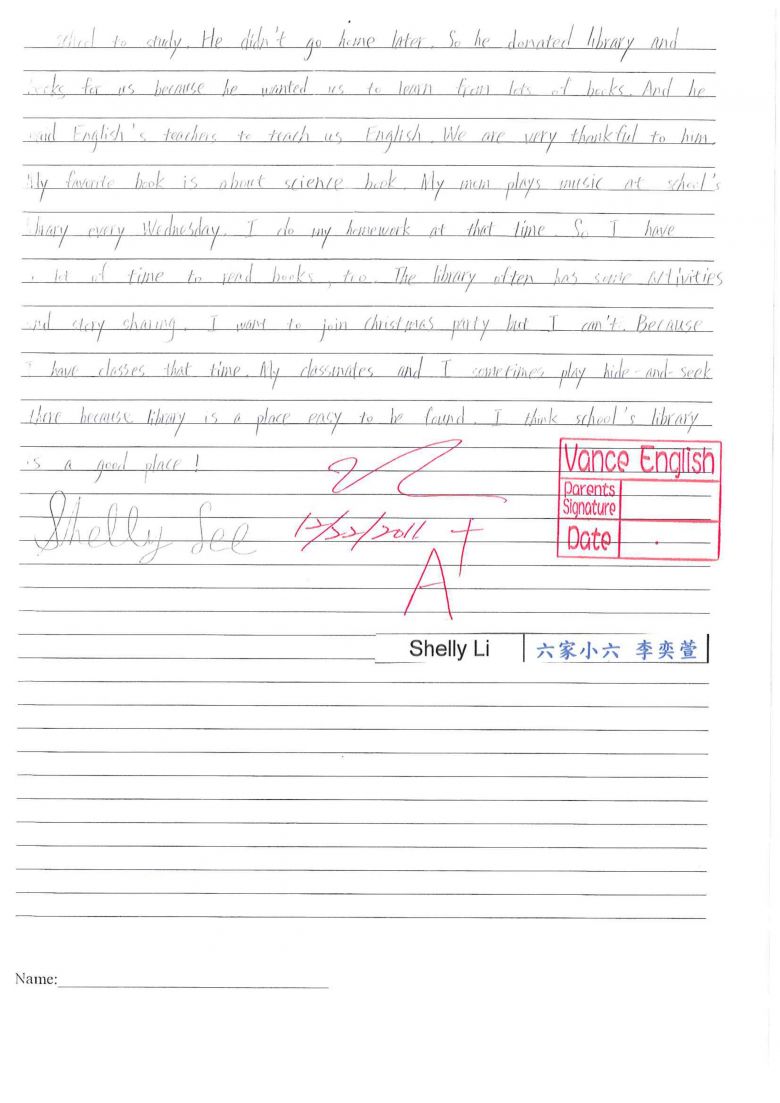 school to study. He didn't go home later. So he donated library and
books for us because he wanted us to learn from lots of books. And he
English's teachers to teach us English. We are very thankful to him.
My favorite book is about science book. My mom plays music at school's
library every Wednesday. I do my homework at that time. So I have
a lot of time to read books, too. The library often has some activities
and story sharing. I want to join christmas party but I can't. Because
I have classes that time. My classmates and I sometimes play hide-and-seek
there because library is a place easy to be found. I think school's library
is a good place!
Vance English
Parents
Signature
Shelly Lee
12/22/2011
Date
A+
Shelly Li
六家小六 李奕萱
Name: